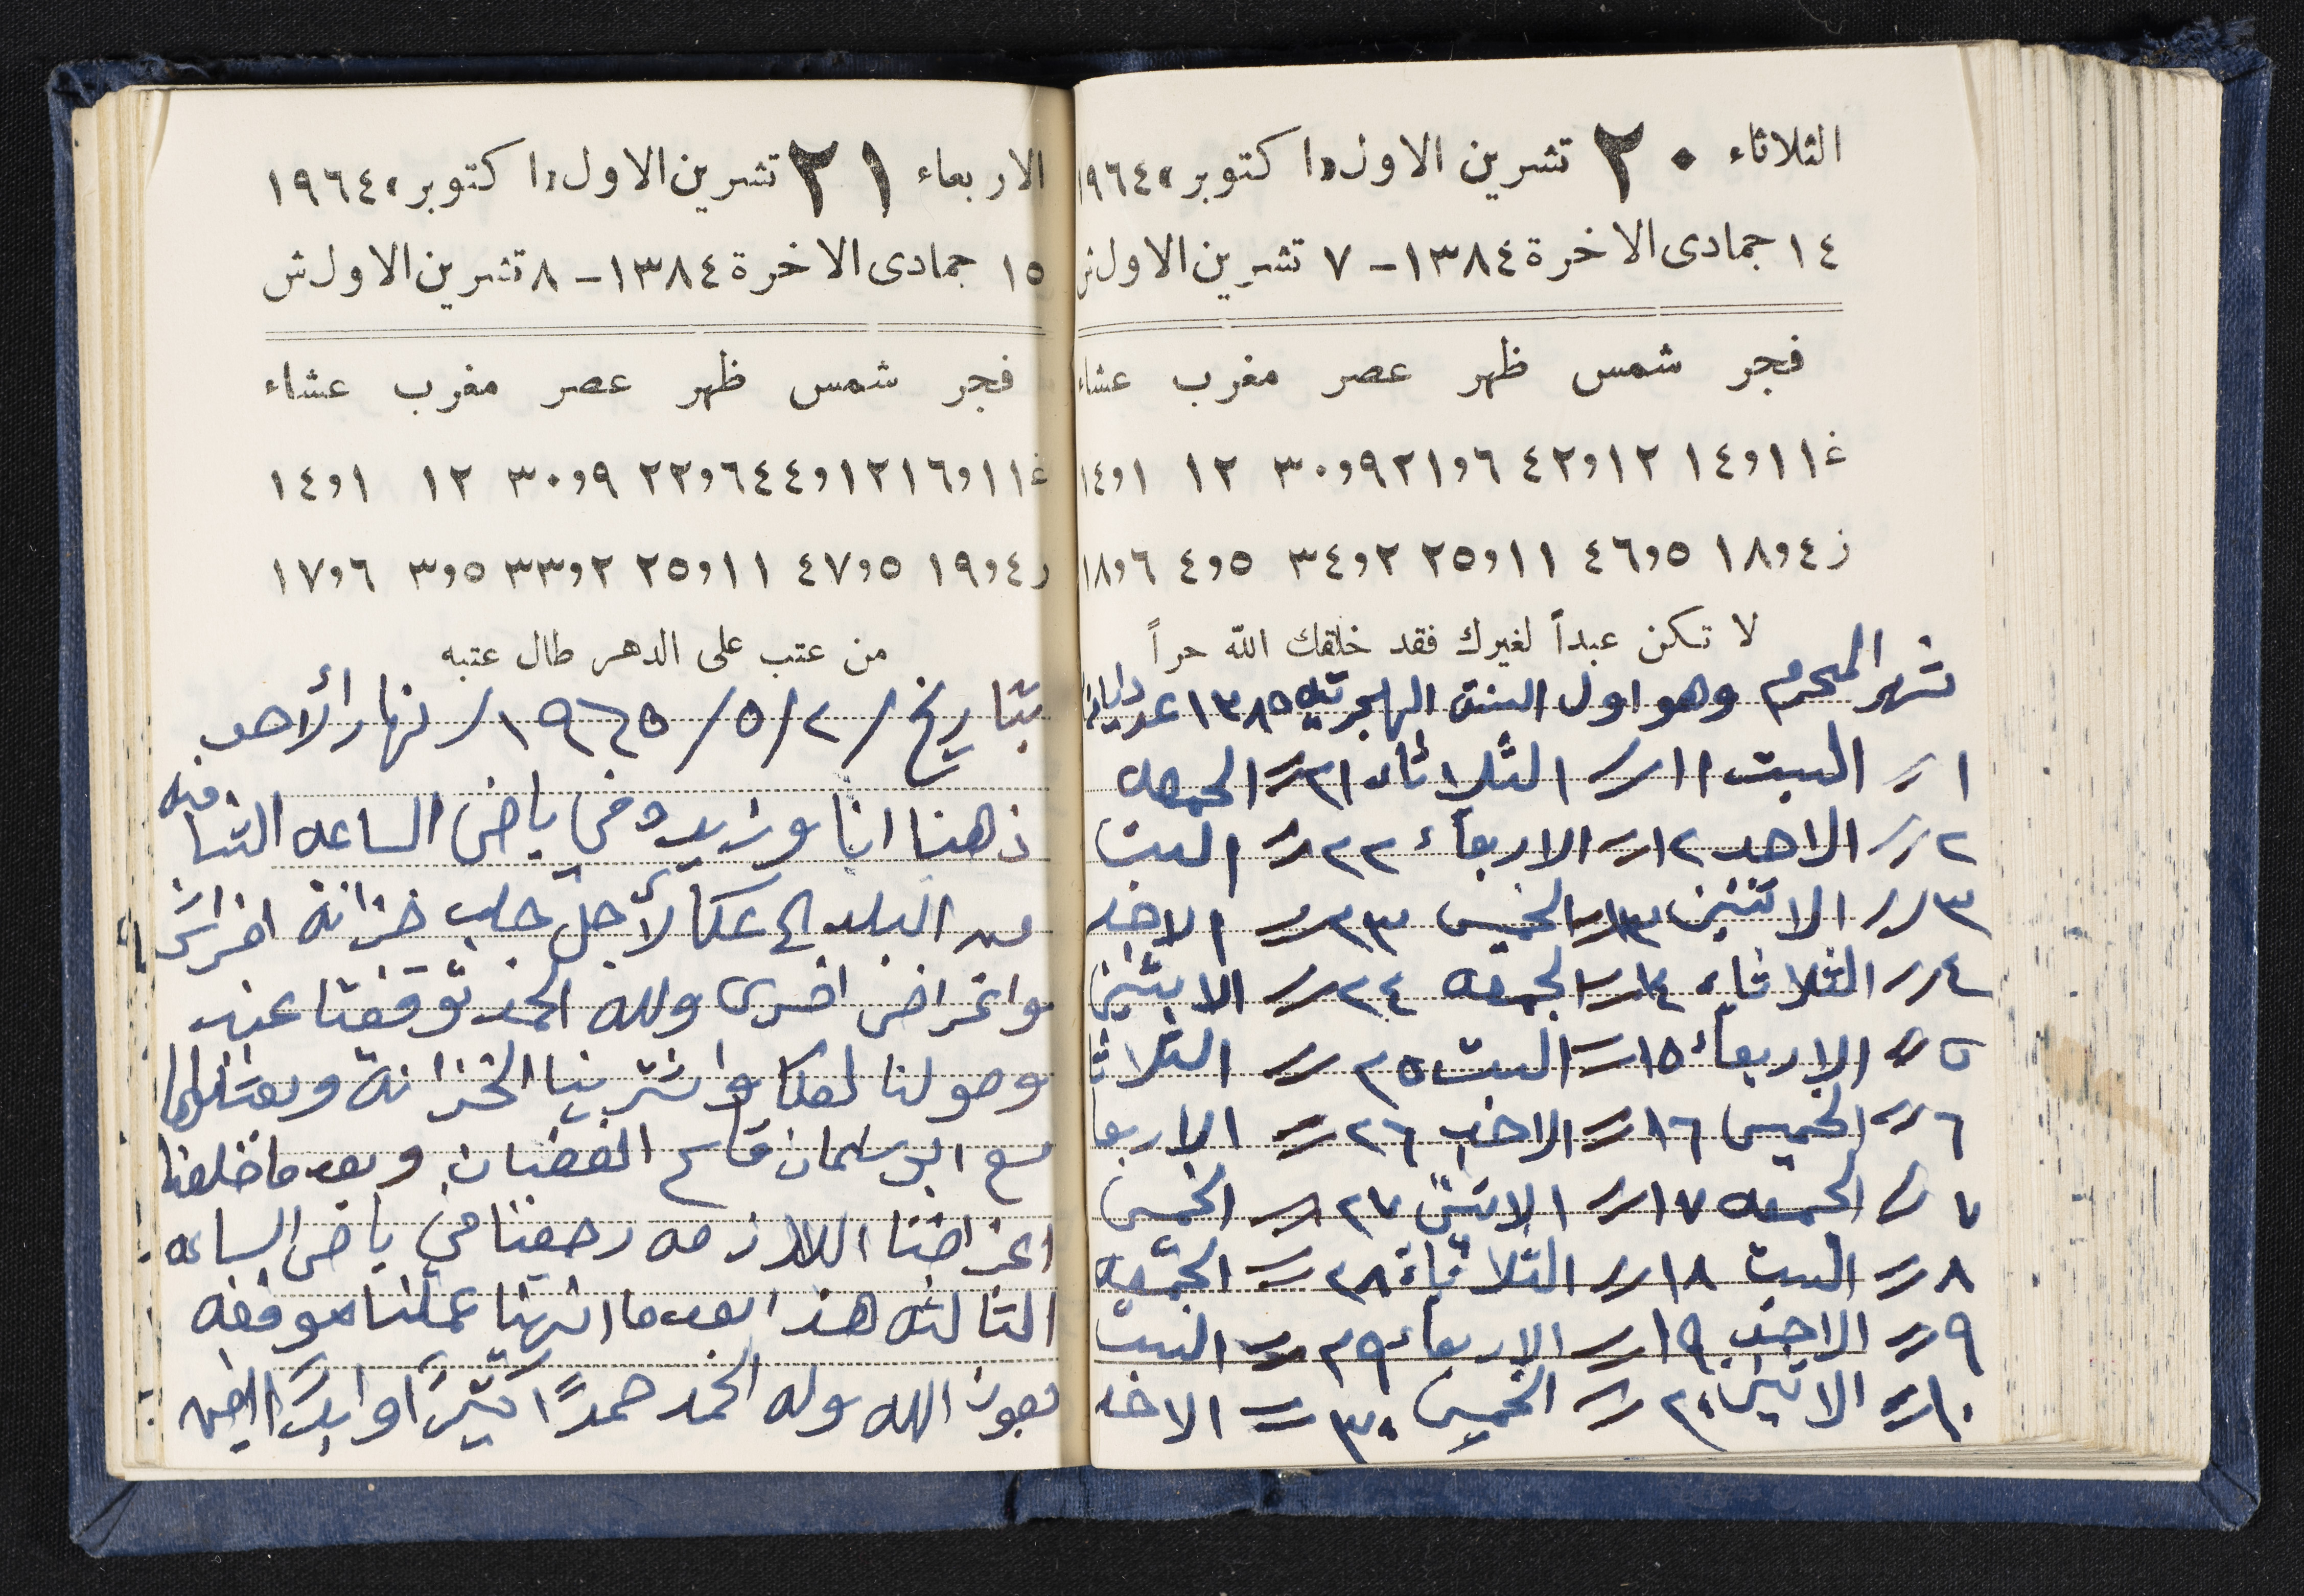 الثلاثاء ٢٠ تشرين الاول «اكتوبر» ١٩٦٤
١٤ جمادى الاخرة ١٣٨٤ - ٧ تشرين الاول ش
فجر شمس ظهر عصر مغرب عشاء
غ ١١و١٤ ١٢و٤٢ ٦و٢١ ٩و٣٠ ١٢ ١و١٤
ز ٤و١٨ ٥و٤٦ ١١و٢٥ ٢و٣٤ ٥و٤ ٦و١٨
لا تكن عبداً لغيرك فقد خلقك الله حراً
شهر المحرم وهو اول السنة الهجرتيه ١٣٨٥ عدد
١ // السبت ١١ // الثلاثاء ٢١ // الجمعه
٢ // الاحد ١٢ // الاربعاء ٢٢ // السبت
٣ // الاثنين ١٣ // الخميس ٢٣ // الاحد
٤ // الثلاثاء ١٤ // الجمعه ٢٤ // الاثنين
٥ // الاربعاء ١٥ // السبت ٢٥ // الثلاثا
٦ // الخميس ١٦ // الاحد ٢٦ // الاربعا
٧ // الجمعه ١٧ // الاثنين ٢٧ // الخميس
٨ // السبت ١٨ // الثلاثاء ٢٨ // الجمعه
٩ // الاحد ١٩ // الاربعاء ٢٩ // السبت
١٠ // الاثنين ٢٠ // الخميس ٣٠ // الاحد
الاربعاء ٢١ تشرين الاول «اكتوبر» ١٩٦٤
١٥ جمادى الاخرة ١٣٨٤ - ٨ تشرين الاول ش
فجر شمس ظهر عصر مغرب عشاء
غ ١١و١٦ ١٢و٤٤ ٦و٢٢ ٩و٣٠ ١٢ ١و١٤
ز ٤و١٩ ٥و٤٧ ١١و٢٥ ٢و٣٣ ٥و٣ ٦و١٧
من عتب على الدهر طال عتبه
بتاريخ / ٢ / ٥ / ١٩٦٥ / نهار الأحد
ذهنا انا وزيد في ياض الساعه الثنا
من البلد الى عكا لأجل جلب خزانة
واغراض اخرى ولله الحمد توقفنا عند
وصولنا لعكا واشترينا الخزانة وبعثناها
مع ابو سلمان قاسم الغضبان وبعد ما خلصنا
اغراضنا اللازمه رجعنا في ياض الساعه
الثالثه هذا بعد ما انهينا عملنا موفقه
بعون الله وله الحمد حمدًا كثيرًا وابدًا